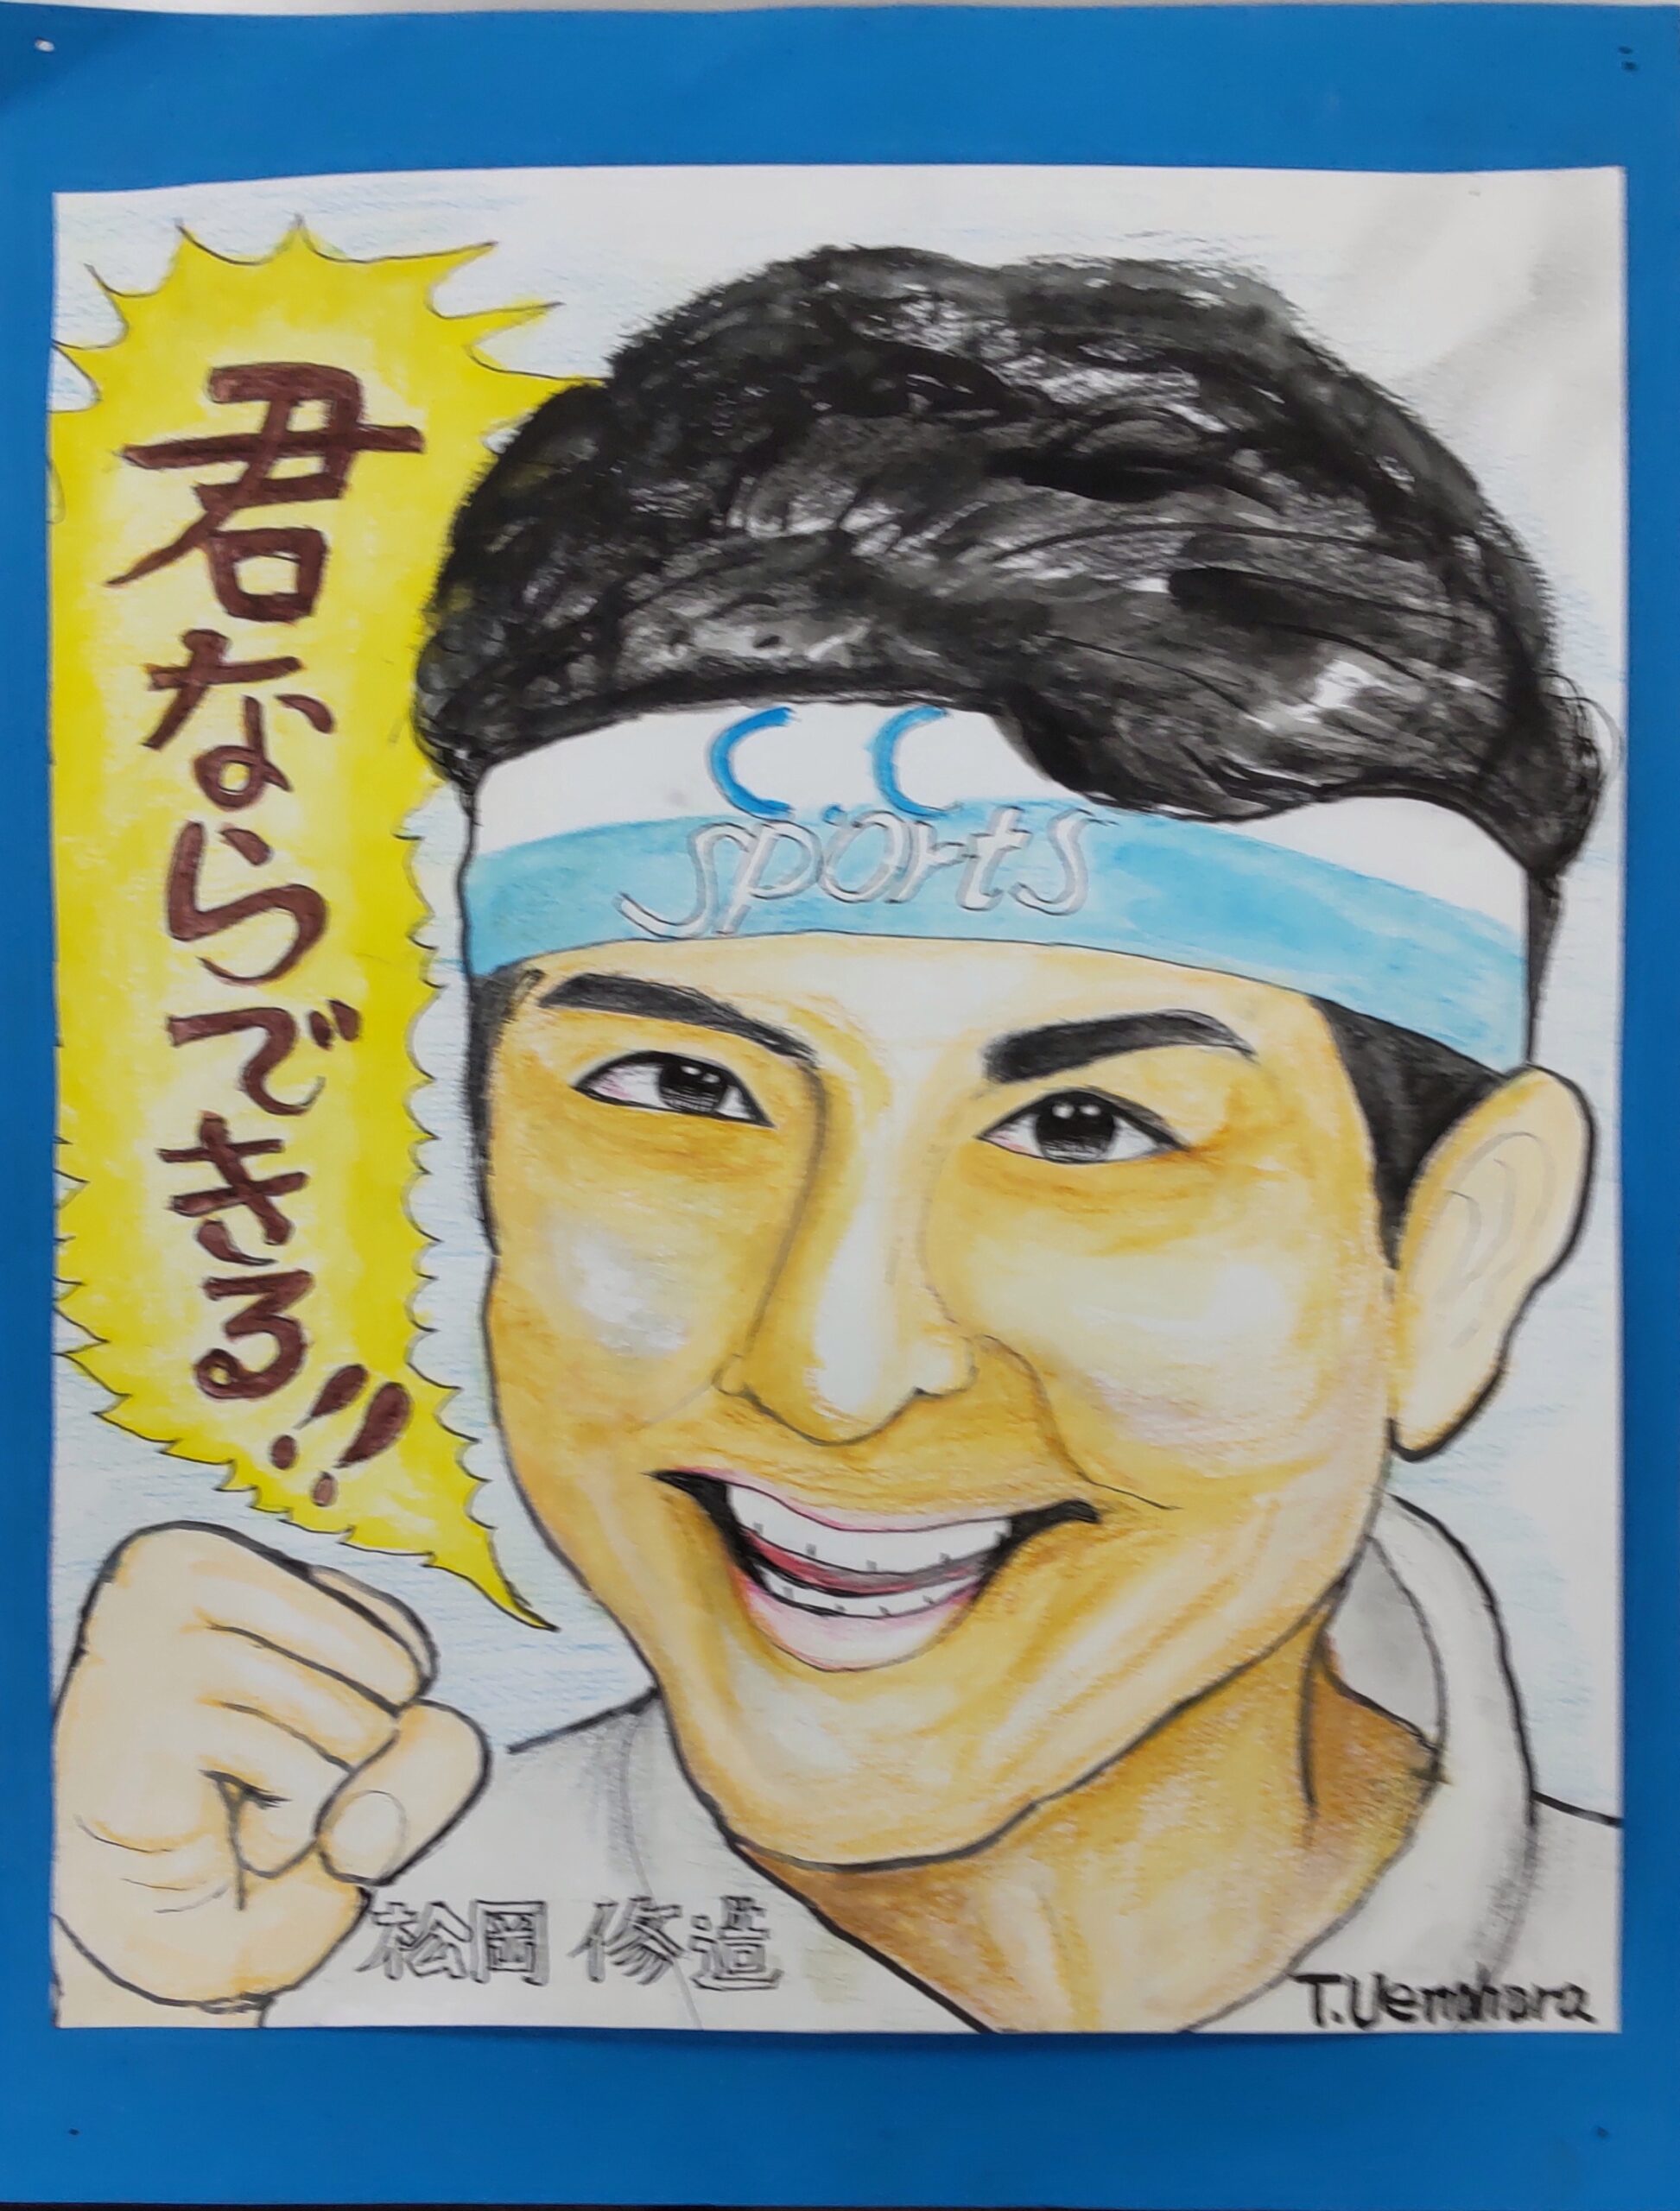 君ならできる!!
C.C
sports
松岡 修造
T.Uemahara